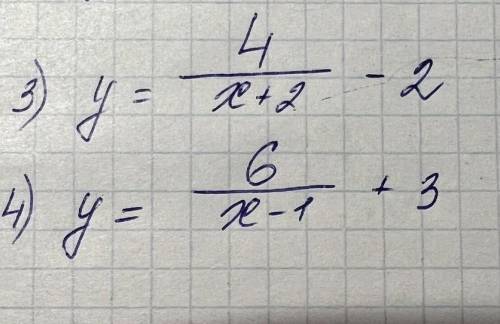 3) y = 4/(x+2) - 2
4) y = 6/(x-1) + 3